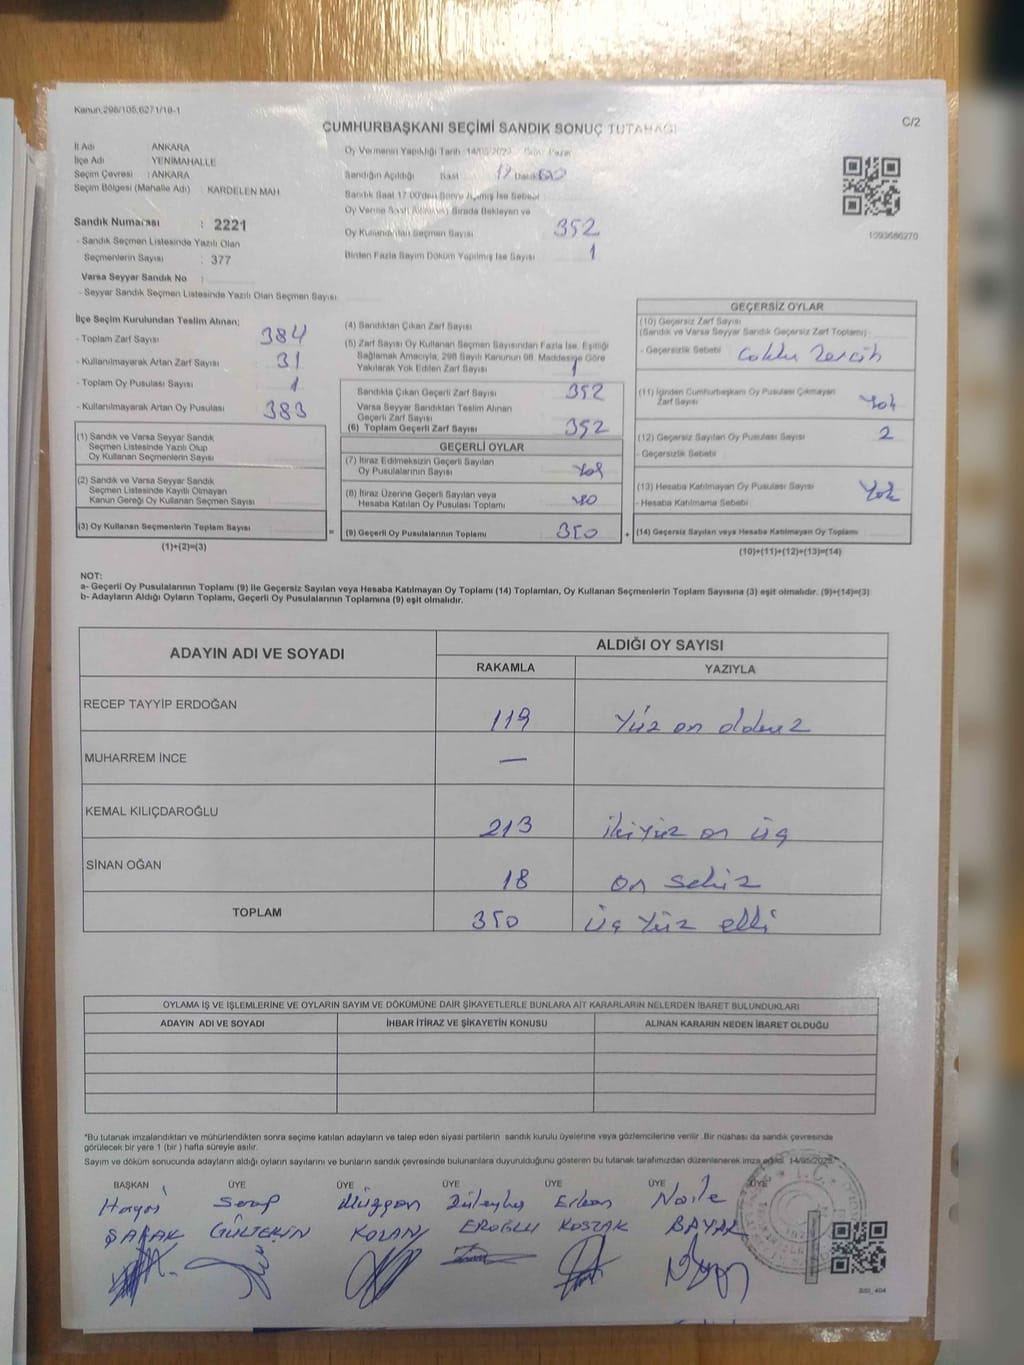 Kanun:298/105;6271/18-1
C/2
CUMHURBAŞKANI SEÇİMİ SANDIK SONUÇ TUTANAĞI
İl Adı ANKARA
İlçe Adı YENİMAHALLE
Seçim Çevresi : ANKARA
Seçim Bölgesi (Mahalle Adı) : KARDELEN MAH
Sandık Numarası : 2221
- Sandık Seçmen Listesinde Yazılı Olan
Seçmenlerin Sayısı : 377
Varsa Seyyar Sandık No :
- Seyyar Sandık Seçmen Listesinde Yazılı Olan Seçmen Sayısı
Oy Vermenin Yapıldığı Tarih :14/05/2023 Pazar
Sandığın Açıldığı Saat 17 Dakika
Sandık Saat 17:00'den Sonra Açılmış İse Sebebi
Oy Verme Saati Sırada Bekleyen ve
Oy Kullandırılan Seçmen Sayısı 352
Birden Fazla Sayım Döküm Yapılmış İse Sayısı 1
1093686270
İlçe Seçim Kurulundan Teslim Alınan;
- Toplam Zarf Sayısı 384
- Kullanılmayarak Artan Zarf Sayısı 31
- Toplam Oy Pusulası Sayısı 1
- Kullanılmayarak Artan Oy Pusulası 383
(1) Sandık ve Varsa Seyyar Sandık
Seçmen Listesinde Yazılı Olup
Oy Kullanan Seçmenlerin Sayısı
(2) Sandık ve Varsa Seyyar Sandık
Seçmen Listesinde Kayıtlı Olmayan
Kanun Gereği Oy Kullanan Seçmen Sayısı
(3) Oy Kullanan Seçmenlerin Toplam Sayısı =
(1)+(2)=(3)
(4) Sandıktan Çıkan Zarf Sayısı
(5) Zarf Sayısı Oy Kullanan Seçmen Sayısından Fazla İse, Eşitliği
Sağlamak Amacıyla, 298 Sayılı Kanunun 98. Maddesine Göre
Yakılarak Yok Edilen Zarf Sayısı 1
Sandıkta Çıkan Geçerli Zarf Sayısı 352
Varsa Seyyar Sandıktan Teslim Alınan
Geçerli Zarf Sayısı
(6) Toplam Geçerli Zarf Sayısı 352
GEÇERLİ OYLAR
(7) İtiraz Edilmeksizin Geçerli Sayılan
Oy Pusulalarının Sayısı Yok
(8) İtiraz Üzerine Geçerli Sayılan veya
Hesaba Katılan Oy Pusulası Toplamı
(9) Geçerli Oy Pusulalarının Toplamı 350 +
GEÇERSİZ OYLAR
(10) Geçersiz Zarf Sayısı
(Sandık ve Varsa Seyyar Sandık Geçersiz Zarf Toplamı)
- Geçersizlik Sebebi Çoklu Tercih
(11) İçinden Cumhurbaşkanı Oy Pusulası Çıkmayan
Zarf Sayısı Yok
(12) Geçersiz Sayılan Oy Pusulası Sayısı 2
- Geçersizlik Sebebi
(13) Hesaba Katılmayan Oy Pusulası Sayısı Yok
- Hesaba Katılmama Sebebi
(14) Geçersiz Sayılan veya Hesaba Katılmayan Oy Toplamı
(10)+(11)+(12)+(13)=(14)
NOT:
a- Geçerli Oy Pusulalarının Toplamı (9) ile Geçersiz Sayılan veya Hesaba Katılmayan Oy Toplamı (14) Toplamları, Oy Kullanan Seçmenlerin Toplam Sayısına (3) eşit olmalıdır. (9)+(14)=(3)
b- Adayların Aldığı Oyların Toplamı, Geçerli Oy Pusulalarının Toplamına (9) eşit olmalıdır.
ADAYIN ADI VE SOYADI
ALDIĞI OY SAYISI
RAKAMLA YAZIYLA
RECEP TAYYİP ERDOĞAN 119 Yüz on dokuz
MUHARREM İNCE —
KEMAL KILIÇDAROĞLU 213 ikiYüz on üç
SİNAN OĞAN 18 on sekiz
TOPLAM 350 üç Yüz elli
OYLAMA İŞ VE İŞLEMLERİNE VE OYLARIN SAYIM VE DÖKÜMÜNE DAİR ŞİKAYETLERLE BUNLARA AİT KARARLARIN NELERDEN İBARET BULUNDUKLARI
ADAYIN ADI VE SOYADI İHBAR İTİRAZ VE ŞİKAYETİN KONUSU ALINAN KARARIN NEDEN İBARET OLDUĞU
*Bu tutanak imzalandıktan ve mühürlendikten sonra seçime katılan adayların ve talep eden siyasi partilerin sandık kurulu üyelerine veya gözlemcilerine verilir. Bir nüshası da sandık çevresinde
görülecek bir yere 1 (bir ) hafta süreyle asılır.
Sayım ve döküm sonucunda adayların aldığı oyların sayılarını ve bunların sandık çevresinde bulunanlara duyurulduğunu gösteren bu tutanak tarafımızdan düzenlenerek imza edildi. 14/05/2023
BAŞKAN ÜYE ÜYE ÜYE ÜYE ÜYE ÜYE
Serap Müzgan Züleyha Erkan Naile
ŞAFAK GÜLTEKİN KOLAN EROĞLU KOSZAK BAYAR
SSI_404